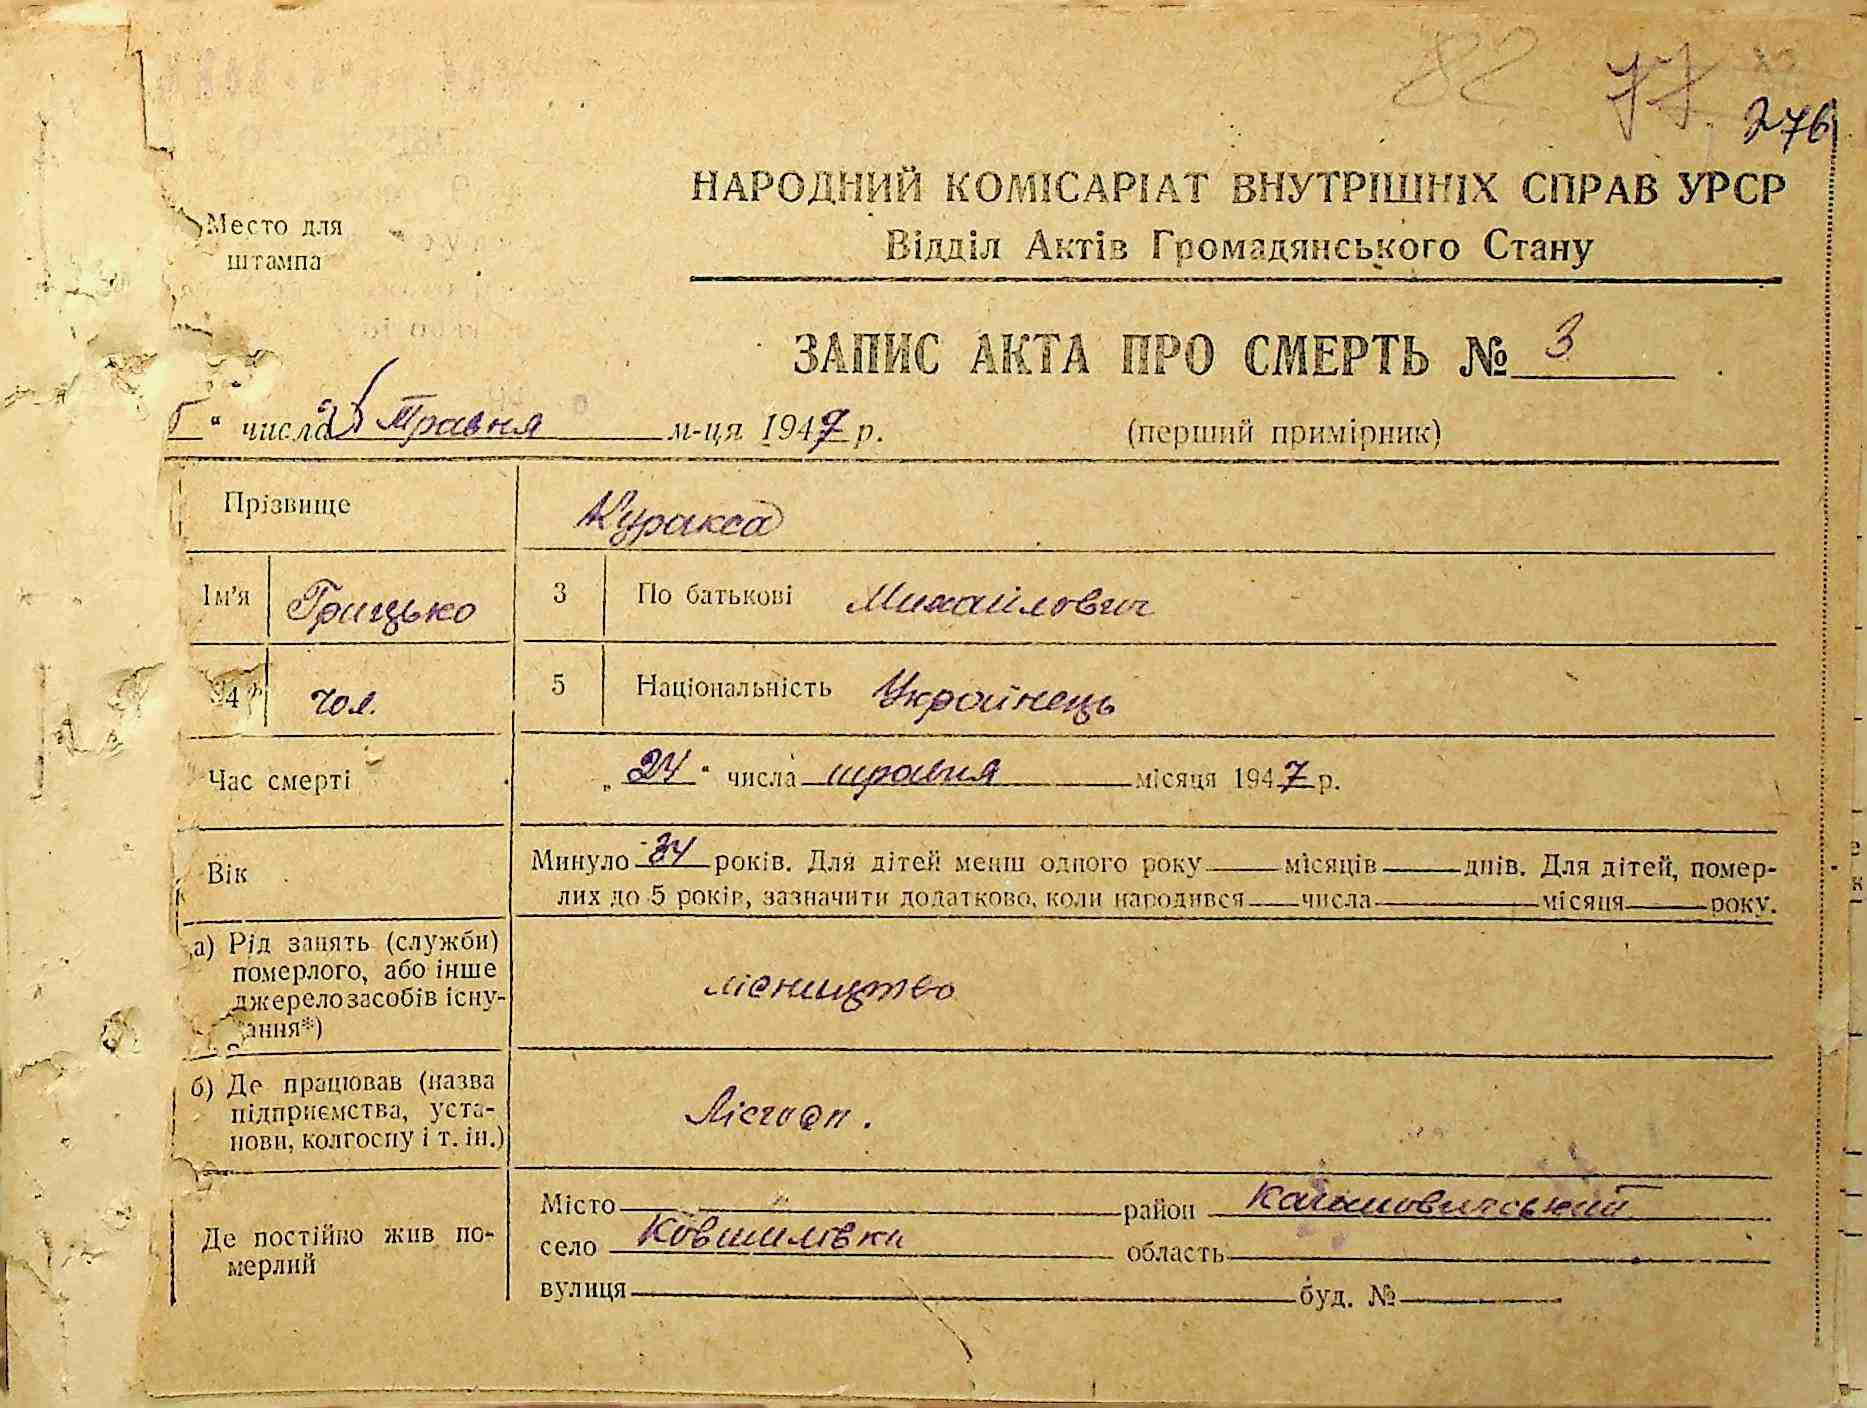 82 77
276
НАРОДНИЙ КОМІСАРІАТ ВНУТРІШНІХ СПРАВ УРСР
Відділ Актів Громадянського Стану
Место для
штампа
ЗАПИС АКТА ПРО СМЕРТЬ № 3
“ числа Травня м-ця 1947 р. (перший примірник)
Прізвище Куракса
Ім'я Грицько 3 По батькові Михайлович
4 чол. 5 Національність Українець
Час смерті „24“ числа травня місяця 1947 р.
Вік Минуло 34 років. Для дітей менш одного року місяців днів. Для дітей, помер-
лих до 5 років, зазначити додатково, коли народився числа місяця року.
а) Рід занять (служби)
померлого, або інше
джерело засобів існу-
вання*)
лісництво
б) Де працював (назва
підприємства, уста-
нови, колгоспу і т. ін.)
Лісгосп.
Де постійно жив по-
мерлий
Місто " район
село Ковшилівка область
вулиця буд. №